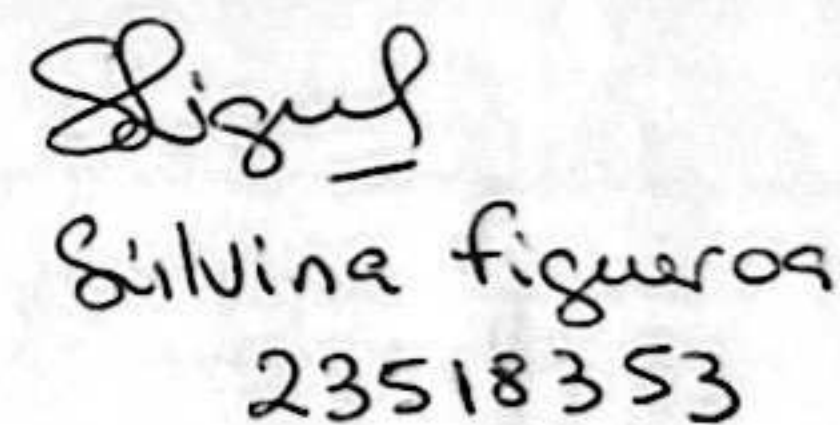 Silvina figueroa
23518353